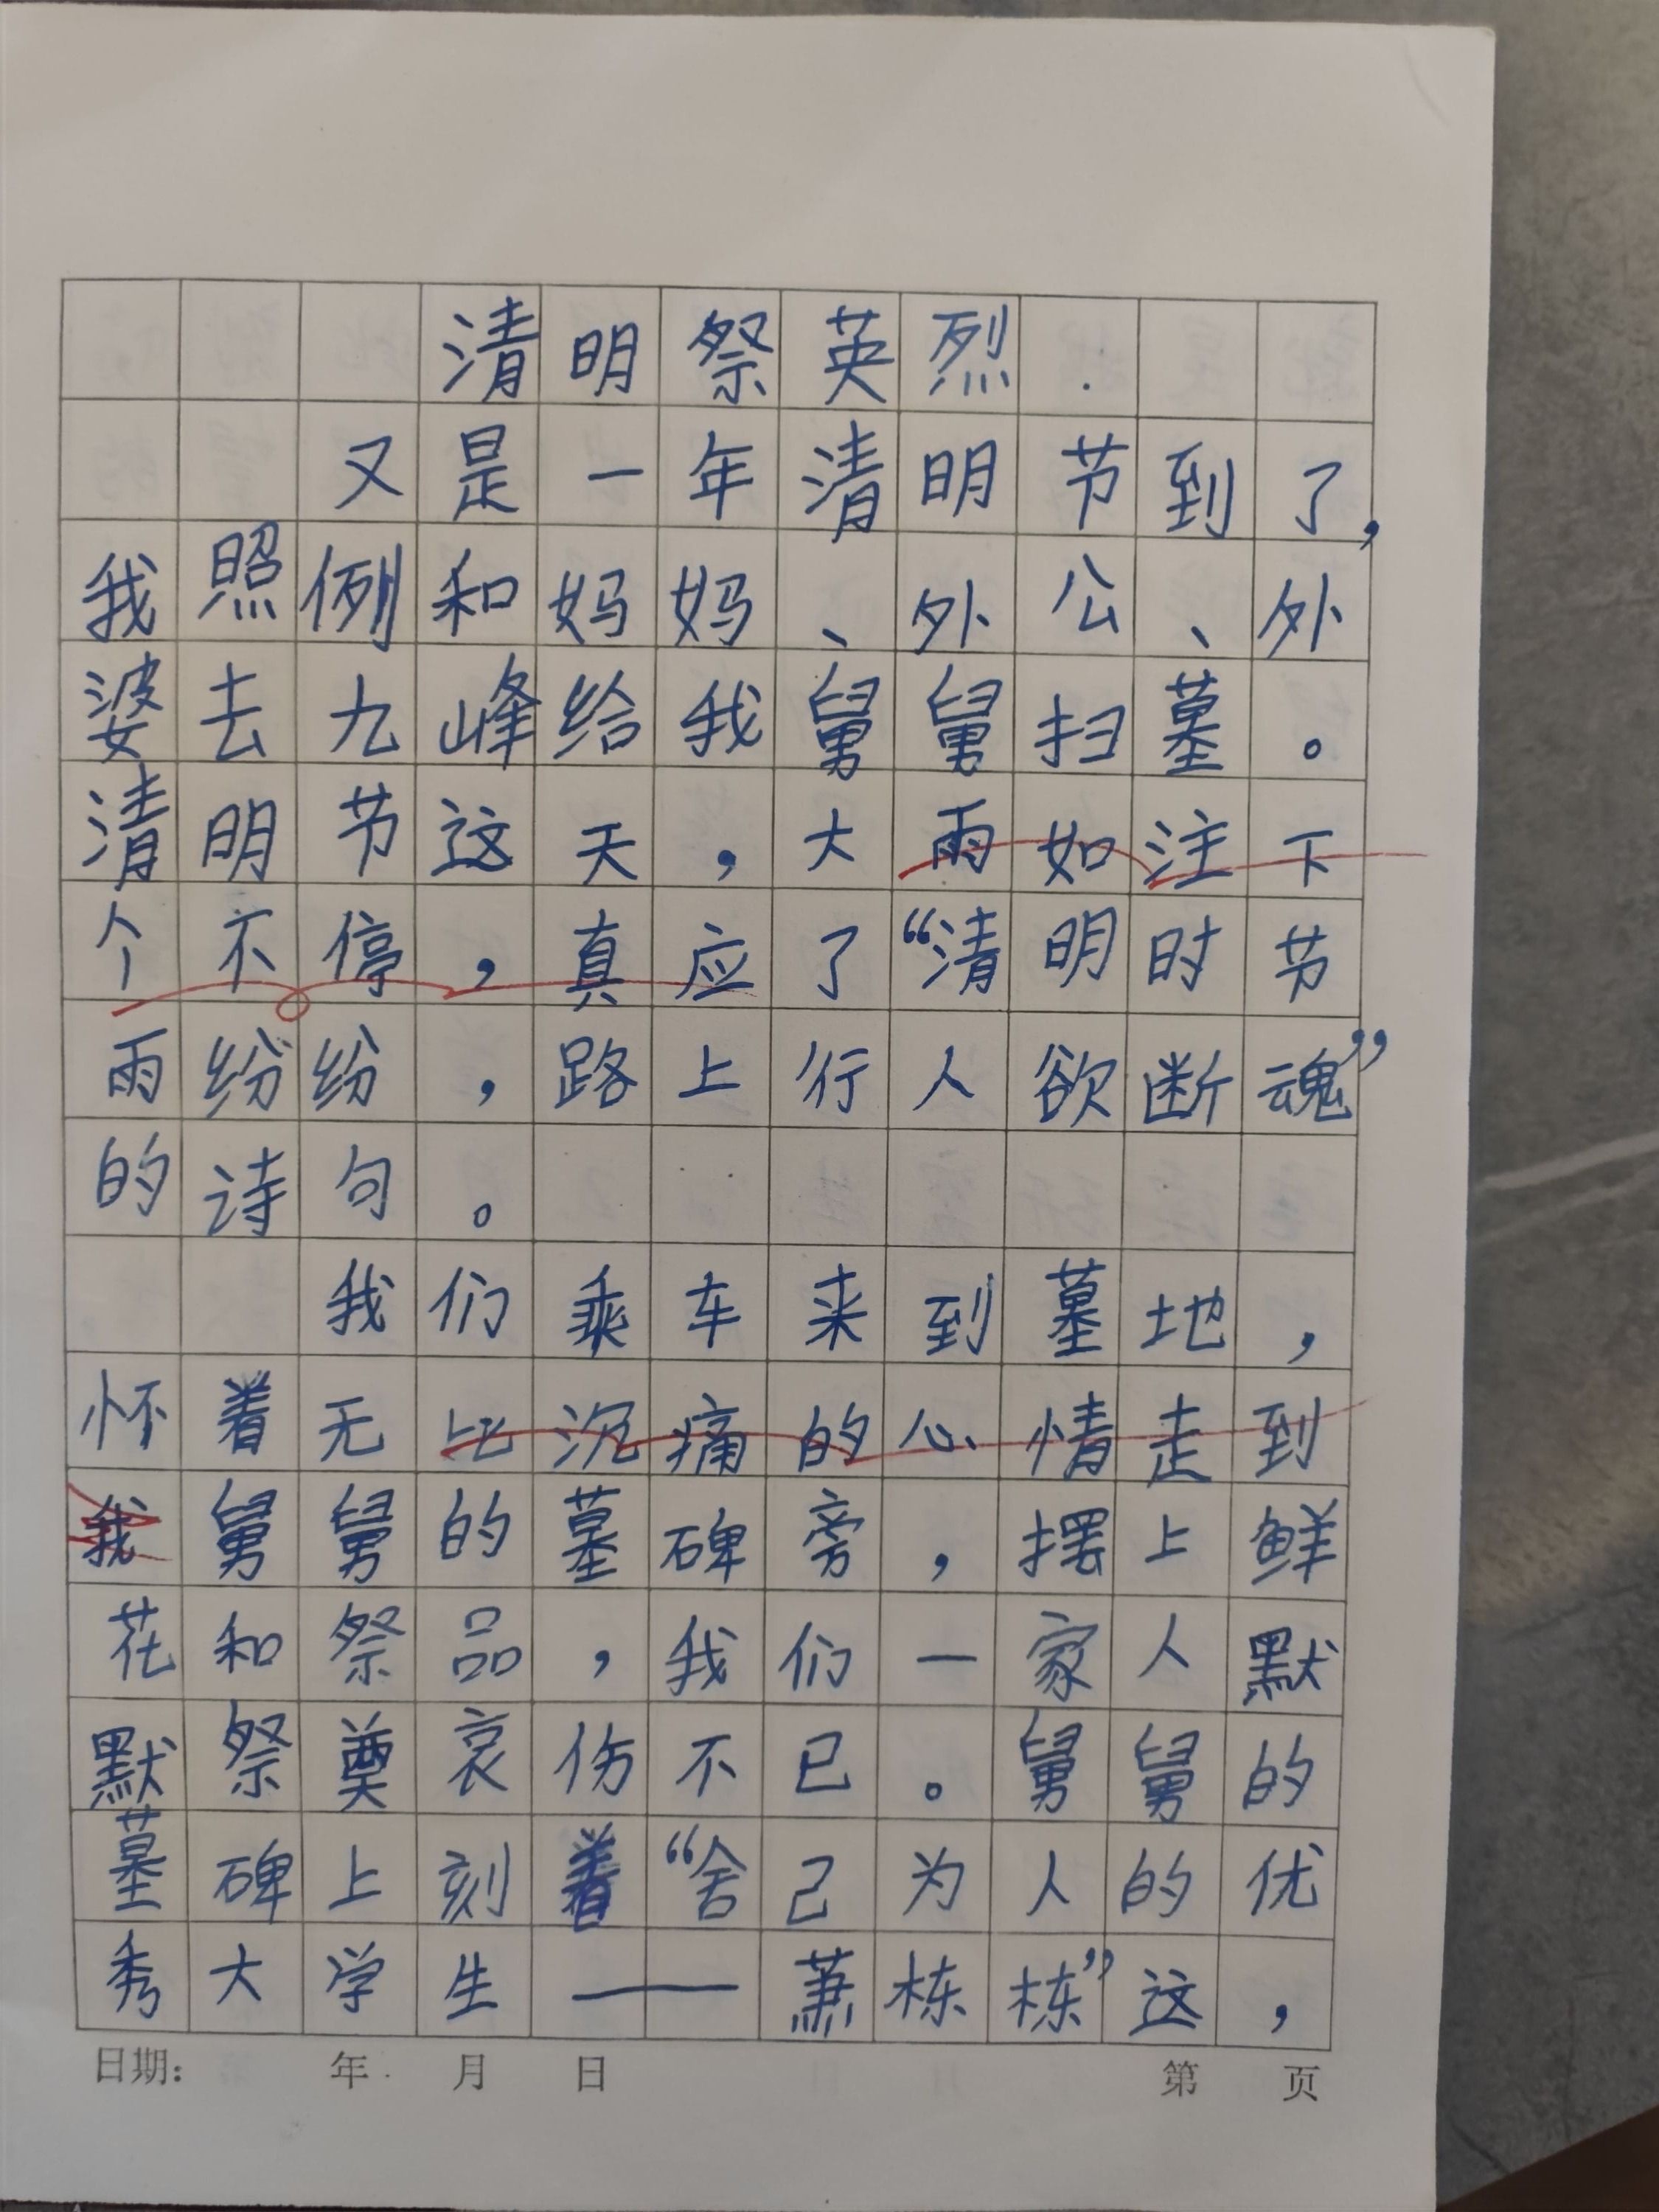 清明祭英烈
又是一年清明节到了，
我照例和妈妈、外公、外
婆去九峰给我舅舅扫墓。
清明节这天，大雨如注下
个不停，真应了“清明时节
雨纷纷，路上行人欲断魂”
的诗句。
我们乘车来到墓地，
怀着无比沉痛的心情走到
我舅舅的墓碑旁，摆上鲜
花和祭品，我们一家人默
默祭奠哀伤不已。舅舅的
墓碑上刻着“舍己为人的优
秀大学生——萧栋栋”这，
日期： 年 月 日 第 页